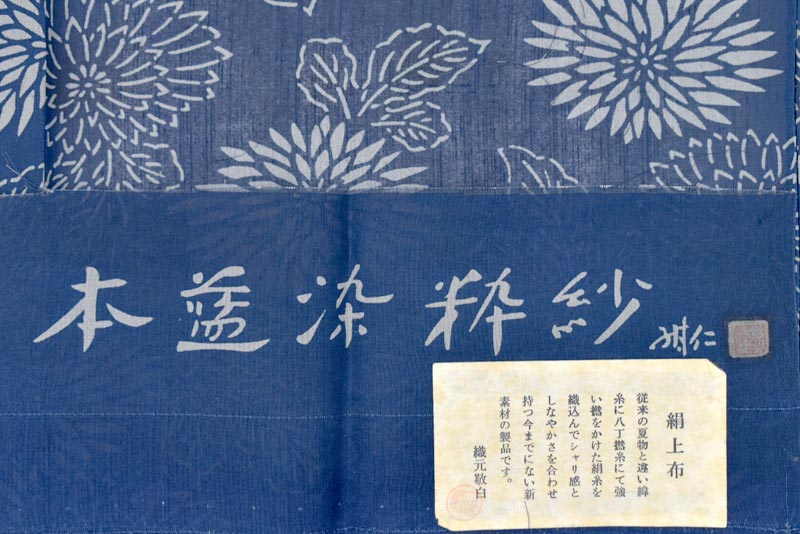 本藍染粋紗
絹上布
従来の夏物と違い緯
糸に八丁撚糸にて強
い撚をかけた絹糸を
織込んでシャリ感と
しなやかさを合わせ
持つ今までにない新
素材の製品です。
織元敬白